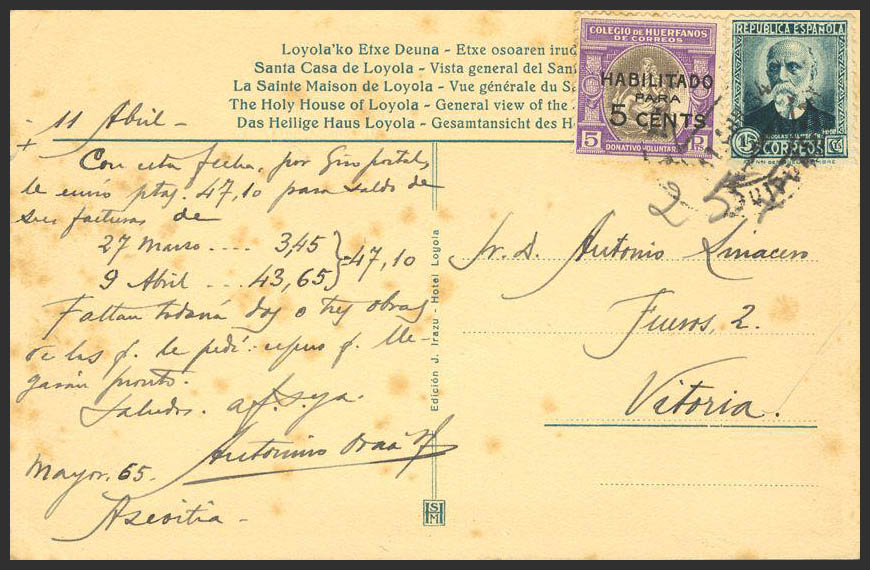 Loyola'ko Etxe Deuna - Etxe osoaren irud
Santa Casa de Loyola - Vista general del San
La Sainte Maison de Loyola - Vue générale du S
The Holy House of Loyola - General view of the
Das Heilige Haus Loyola - Gesamtansicht des H
COLEGIO DE HUERFANOS
DE CORREOS
HABILITADO
PARA
5 CENTS
5 P.
DONATIVO VOLUNTAR
REPUBLICA ESPAÑOLA
15 CORREOS Cts
25
11 Abril -
Con esta fecha, por Giro postal,
le envio ptas. 47,10 para saldo de
sus facturas de
27 Marzo .... 3,45
9 Abril ... 43,65
47,10
Faltan todavía dos o tres obras
de las q. le pedí. espero q. lle-
garán pronto.
Saludos.
Antonino Oraa
Mayor. 65.
Azcoitia -
Edición J. Irazu - Hotel Loyola
Sr. D. Antonio Linacero
Fueros, 2.
Vitoria.